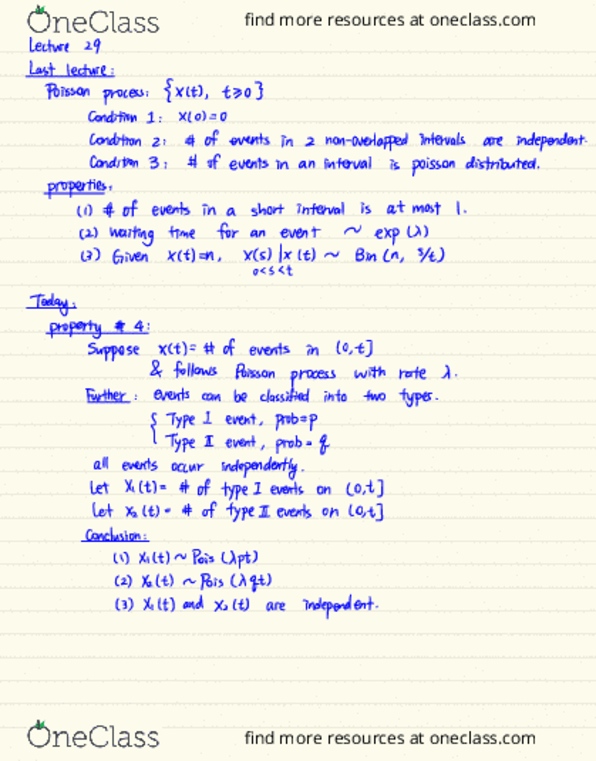 OneClass find more resources at oneclass.com
Lecture 29
Last lecture:
Poisson process: {X(t), t≥0}
Condition 1: X(0)=0
Condition 2: # of events in 2 non-overlapped intervals are independent.
Condition 3: # of events in an interval is poisson distributed.
properties:
(1) # of events in a short interval is at most 1.
(2) waiting time for an event ~ exp(λ)
(3) Given X(t)=n, X(s)|X(t) ~ Bin(n, s/t)
0<s<t
Today:
property # 4:
Suppose X(t)= # of events in (0,t]
& follows Poisson process with rate λ.
Further: events can be classified into two types.
{ Type I event, prob=p
Type II event, prob= q
all events occur independently.
Let X₁(t)= # of type I events on (0,t]
Let X₂(t)= # of type II events on (0,t]
Conclusion:
(1) X₁(t) ~ Pois(λpt)
(2) X₂(t) ~ Pois(λqt)
(3) X₁(t) and X₂(t) are independent.
OneClass find more resources at oneclass.com